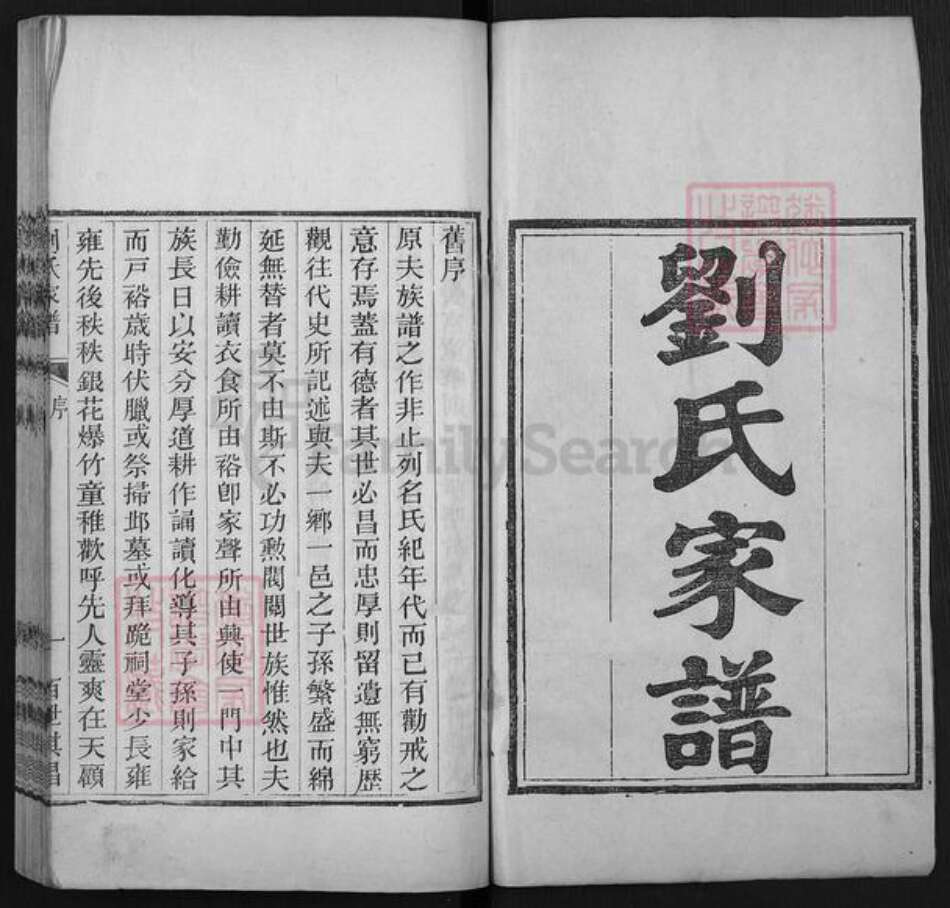 劉氏家譜
舊序
原夫族譜之作非止列名氏紀年代而已有勸戒之
意存焉蓋有德者其世必昌而忠厚則留遺無窮歷
觀往代史所記述與夫一鄉一邑之子孫繁盛而綿
延無替者莫不由斯不必功勲閥閱世族惟然也夫
勤儉耕讀衣食所由裕卽家聲所由興使一門中其
族長日以安分厚道耕作誦讀化導其子孫則家給
而戸裕歳時伏臘或祭掃邱墓或拜跪祠堂少長雍
雍先後秩秩銀花爆竹童稚歡呼先人靈爽在天顧
劉氏家譜 序 一 百世其昌
FamilySearch